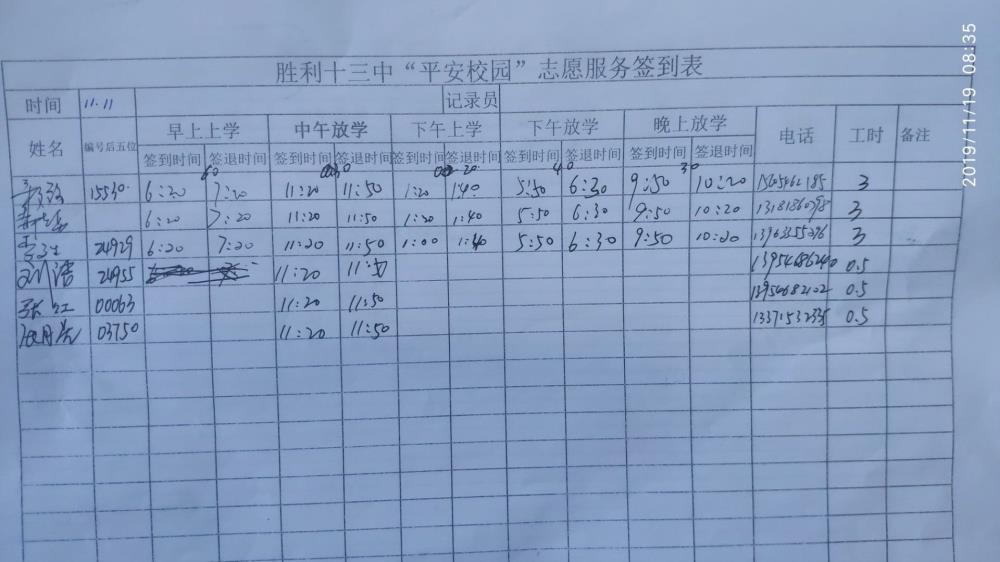 2019/11/19 08:35
胜利十三中“平安校园”志愿服务签到表
时间 11.11 记录员
姓名 编号后五位 早上上学 中午放学 下午上学 下午放学 晚上放学 电话 工时 备注
签到时间 签退时间 签到时间 签退时间 签到时间 签退时间 签到时间 签退时间 签到时间 签退时间
15530 6:20 7:20 11:20 11:50 1:20 1:40 5:50 6:30 9:50 10:20 3
6:20 7:20 11:20 11:50 1:20 1:40 5:50 6:30 9:50 10:20 3
24929 6:20 7:20 11:20 11:50 1:00 1:40 5:50 6:30 9:50 10:20 3
刘浩 24955 11:20 11:50 13954686240 0.5
张红 00063 11:20 11:50 13954682102 0.5
03750 11:20 11:50 13371532335 0.5